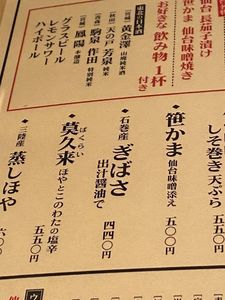 仙台長茄子漬け
笹かま 仙台味噌焼き
お好きな飲み物1杯付き
東北の日本酒
黄金澤 山廃純米酒
天の戸 芳泉 純米
駒泉 作田 特別純米
鳳陽 本醸造
グラスビール
レモンサワー
ハイボール
しそ巻き天ぷら
五五〇円
笹かま 仙台味噌添え
五〇〇円
石巻産
ぎばさ
出汁醤油で
四四〇円
ばくらい
莫久来
ほやとこのわたの塩辛
五五〇円
三陸産
蒸しほや